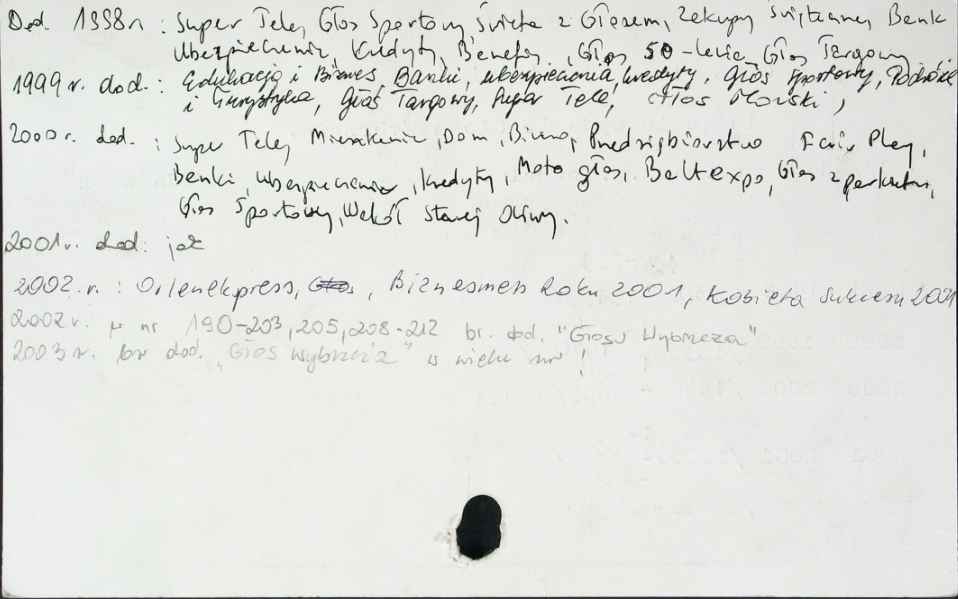 Dod. 1998r : Super Tele, Głos Sportowy, Święta z Głosem, Zakupy świąteczne, Banki
Ubezpieczenia, Kredyty, Benefis, Głos 50-lecia, Głos Targowy
1999 r. dod. : Edukacja i Biznes, Banki, ubezpieczenia, kredyty, Głos Sportowy, Podróże
i Turystyka, Głos Targowy, Super Tele, Głos Morski,
2000 r. dod. : Super Tele, Mieszkanie, Dom, Biuro, Przedsiębiorstwo Fair Play,
Banki, ubezpieczenia, kredyty, Moto głos, Baltexpo, Głos z parkietu,
Głos Sportowy, Wokół Starej Oliwy.
2001 r. dod: jak
2002. r. : Orlenekpress, Głos, Biznesmen Roku 2001, Kobieta Sukcesu 2001
2002 r. w nr 190-203, 205, 208-212 br. dod. "Głosu Wybrzeża"
2003 r. br dod. "Głos Wybrzeża" w wielu nr !